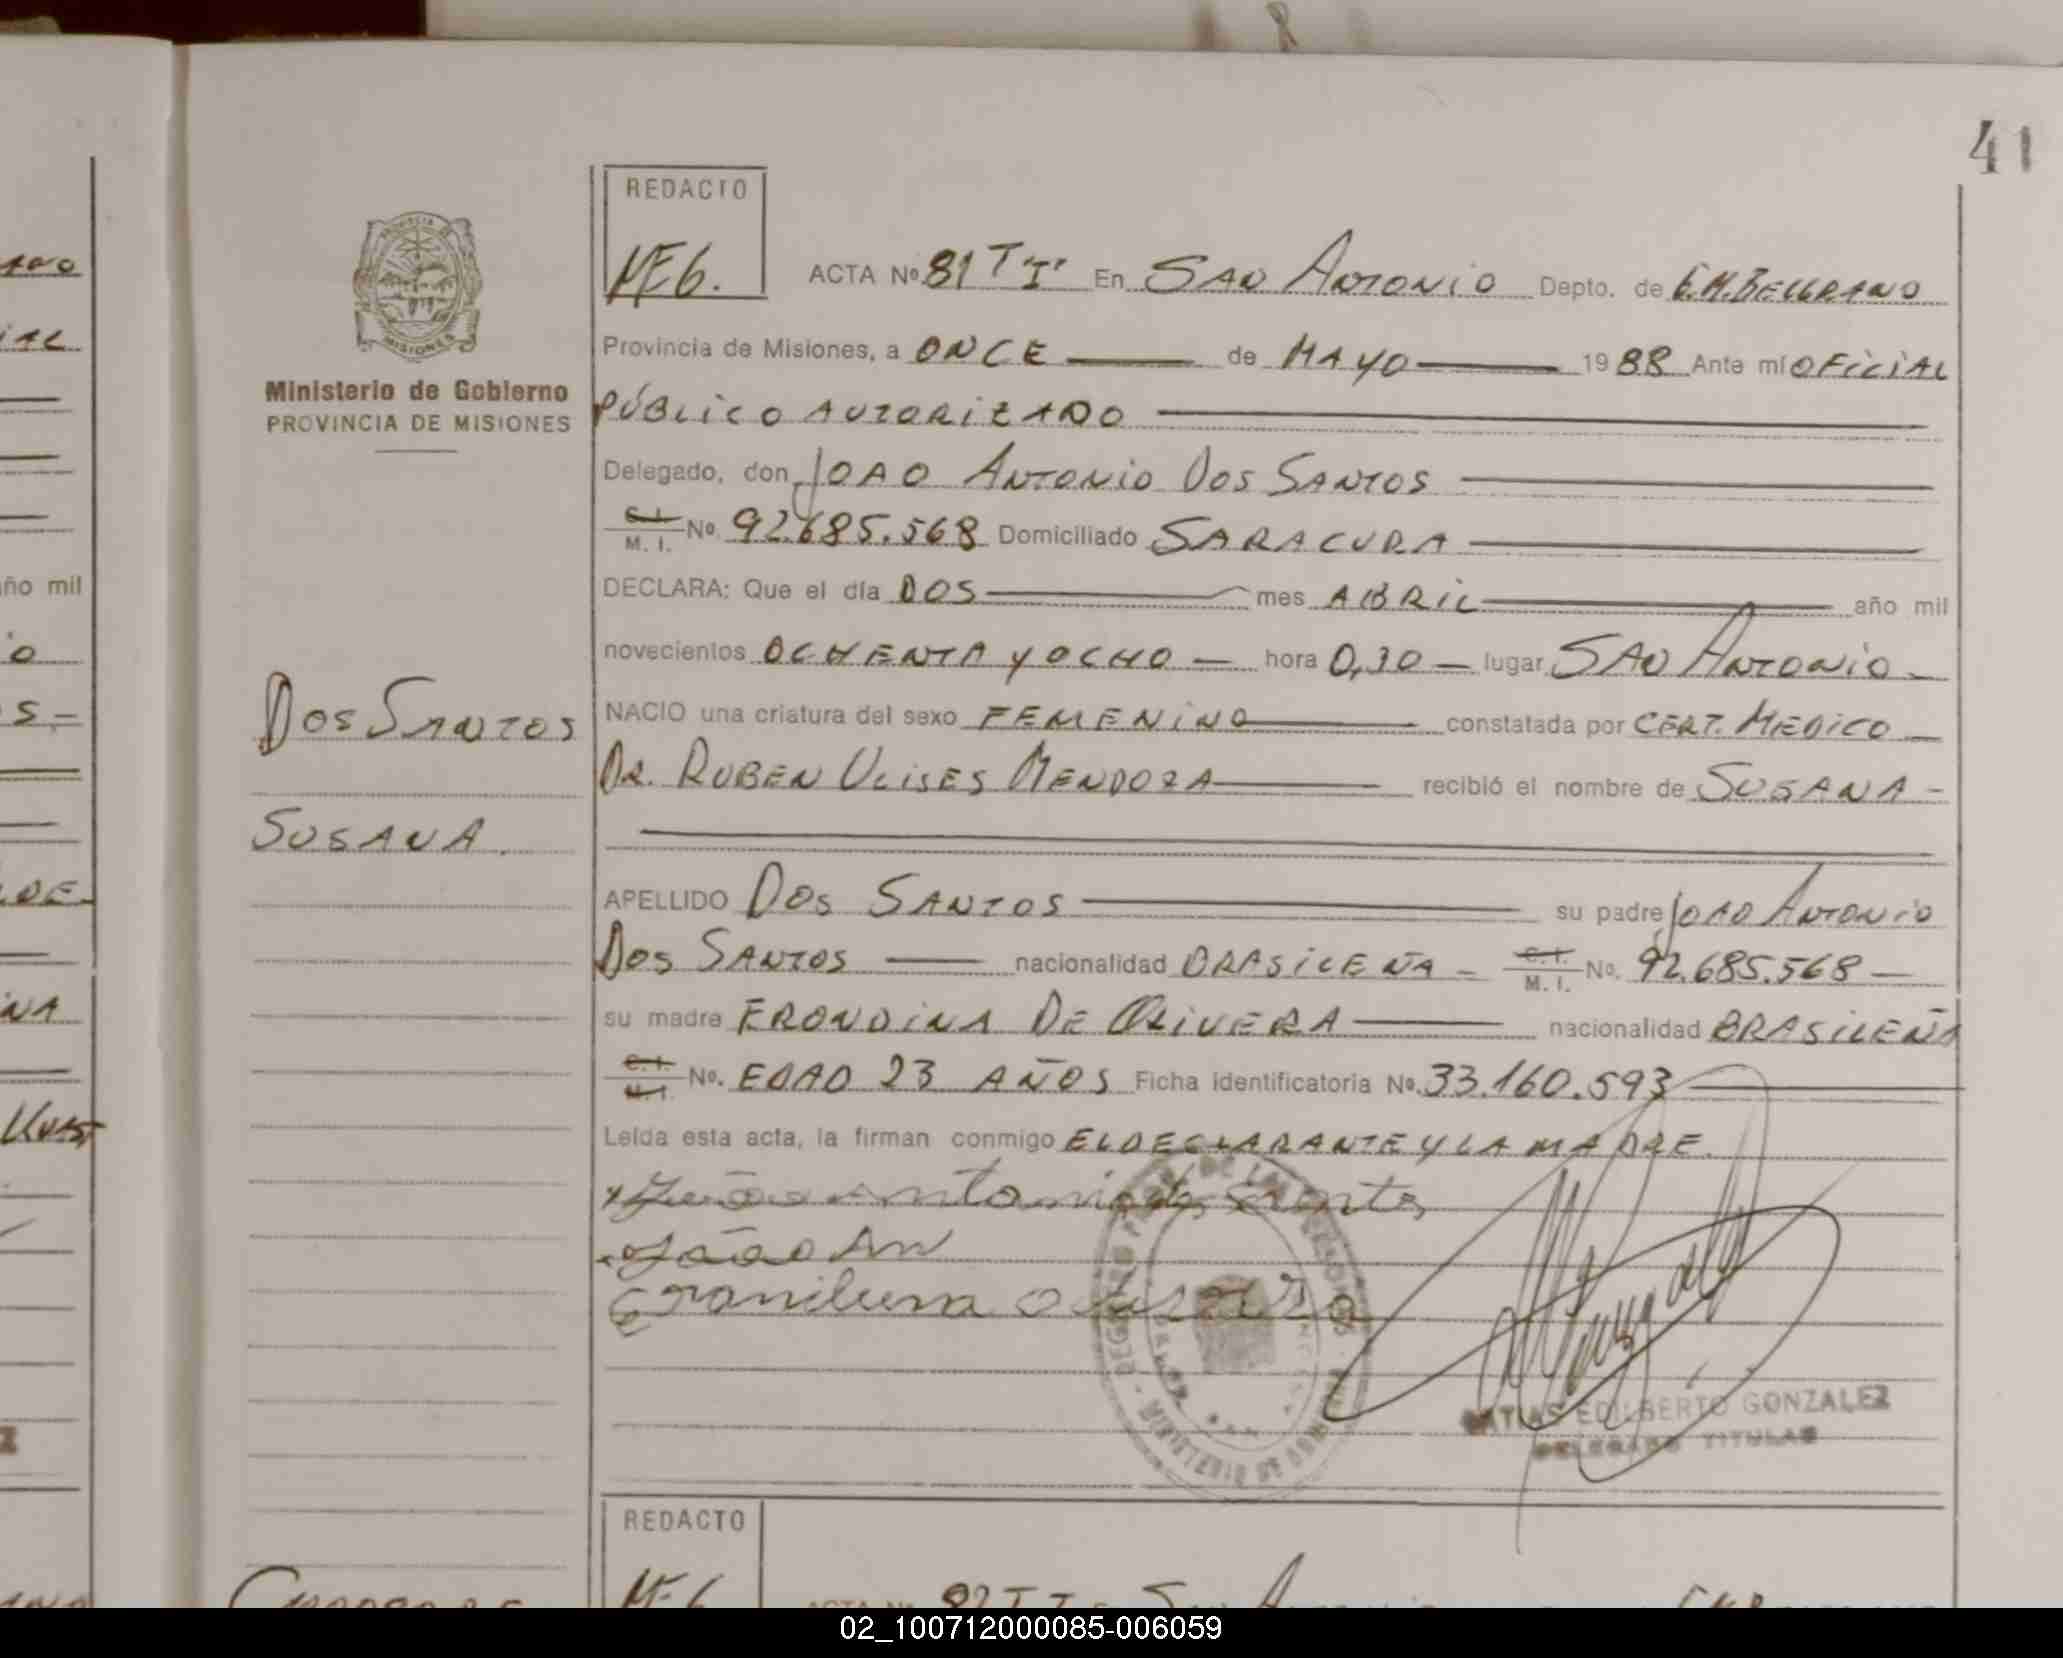 41
REDACTO
MEG.
ACTA Nº 81 T "I" En SAN ANTONIO Depto. de G.M.BELGRANO
Provincia de Misiones, a ONCE de MAYO 1988 Ante mí OFICIAL
PÚBLICO AUTORIZADO
Delegado, don JOAO ANTONIO DOS SANTOS
C.I. M. I. No. 92.685.568 Domiciliado SARACURA
DECLARA: Que el día DOS mes ABRIL año mil
novecientos OCHENTA Y OCHO hora 0,30 lugar SAN ANTONIO
NACIO una criatura del sexo FEMENINO constatada por CERT. MEDICO
DR. RUBEN ULISES MENDOZA recibió el nombre de SUSANA
APELLIDO DOS SANTOS su padre JOAO ANTONIO
DOS SANTOS nacionalidad BRASILEÑA C.I. M. I. No. 92.685.568
su madre ERONDINA DE OLIVERA nacionalidad BRASILEÑA
C.I. M.I. No. EDAD 23 AÑOS Ficha identificatoria No. 33.160.593
Leída esta acta, la firman conmigo EL DECLARANTE Y LA MADRE.
João Antonio dos Santos
João An
MATIAS EDILBERTO GONZALEZ
DELEGADO TITULAR
PROVINCIA DE
MISIONES
Ministerio de Gobierno
PROVINCIA DE MISIONES
DOS SANTOS
SUSANA.
REDACTO
ACTA Nº 82 T I
ño mil
02_100712000085-006059